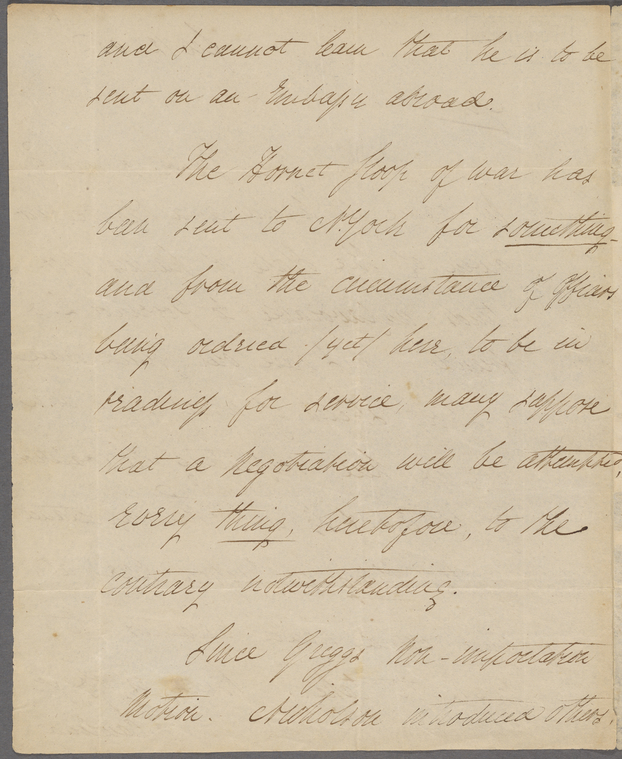 and I cannot learn that he is to be
sent on an Embassy abroad.
The Hornet sloop of war has
been sent to N.York for something -
and from the circumstance of officers
being ordered (yet) here, to be in
readiness for service, many suppose
that a Negotiation will be attempted,
Every thing, heretofore, to the
contrary notwithstanding.
Since Greggs Non-importation
Motion. Nicholson introduced others.